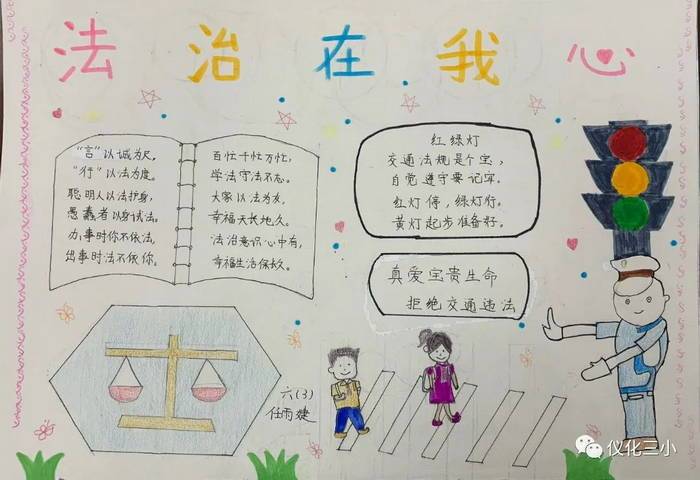 法治在我心
“言”以诚为尺，
“行”以法为度。
聪明人以法护身，
愚蠢者以身试法。
办事时你不依法，
出事时法不依你。
百忙千忙万忙，
学法守法不忘。
大家以法为友，
幸福天长地久。
法治意识心中有，
幸福生活保永久。
红绿灯
交通法规是个宝，
自觉遵守要记牢。
红灯停，绿灯行。
黄灯起步准备好。
真爱宝贵生命
拒绝交通违法
六（3）
任雨婕
仪化三小